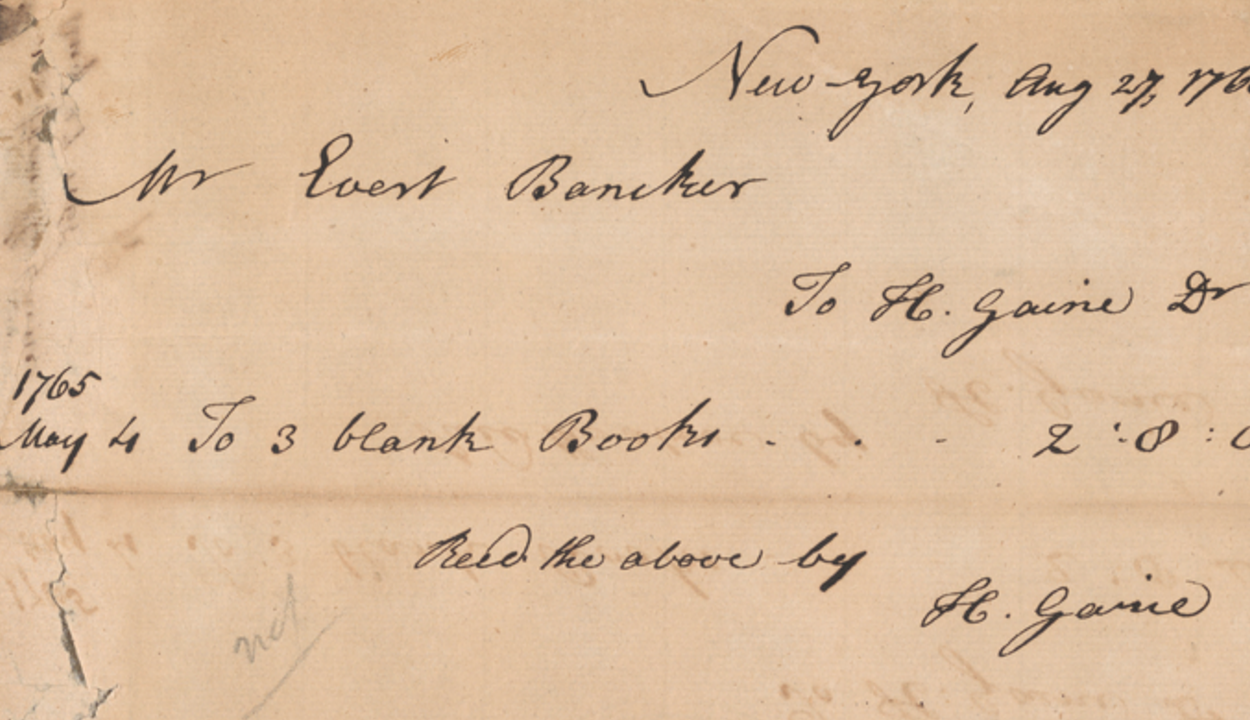 New-York, Aug 27, 176
Mr Evert Bancker
To H. Gaine Dr
1765
May 4 To 3 blank Books - - - 2:8:0
Recd the above by
H. Gaine